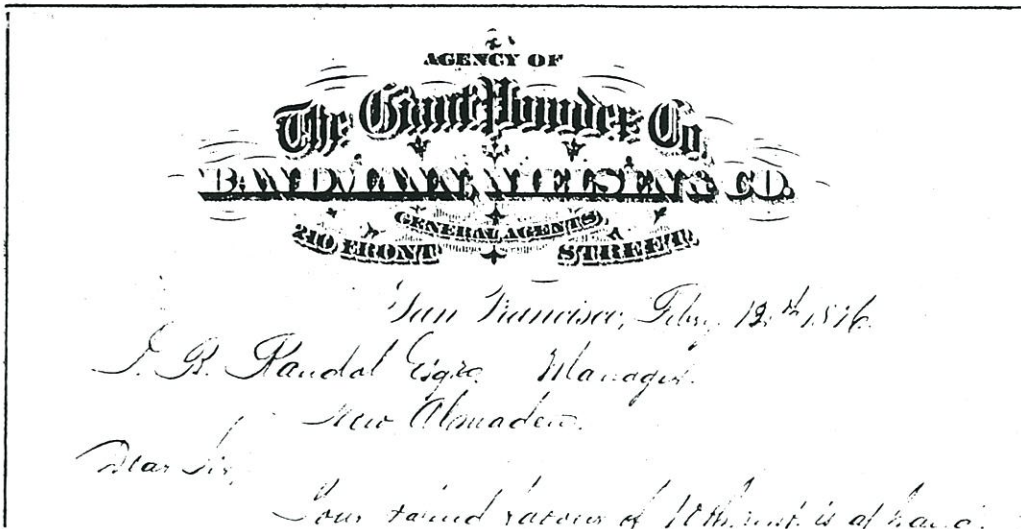 AGENCY OF
The Giant Powder Co.
BANDMANN, NIELSEN & CO.
GENERAL AGENTS,
210 FRONT STREET.
San Francisco, Feby. 12th 1876
J. B. Randol Esqre. Manager.
New Almaden.
Dear Sir,
Your favor of 10th. inst. is at hand.